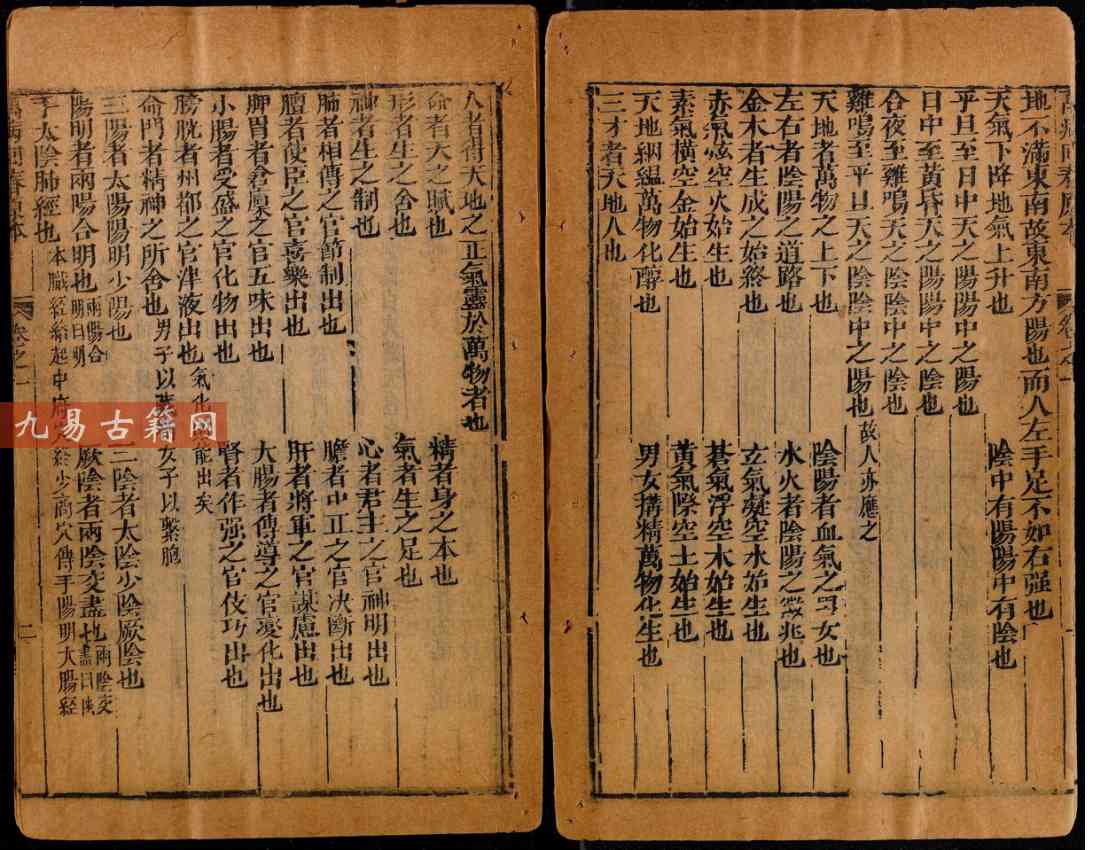 萬病回春原本
卷之一
地不滿東南故東南方陽也而人左手足不如右强也
天氣下降地氣上升也 陰中有陽陽中有陰也
平旦至日中天之陽陽中之陽也
日中至黃昏天之陽陽中之陰也
合夜至雞鳴天之陰陰中之陰也
雞鳴至平旦天之陰陰中之陽也故人亦應之
天地者萬物之上下也 陰陽者血氣之男女也
左右者陰陽之道路也 水火者陰陽之徵兆也
金木者生成之始終也 玄氣凝空水始生也
赤氣炫空火始生也 蒼氣浮空木始生也
素氣橫空金始生也 黃氣際空土始生也
天地絪縕萬物化醇也 男女搆精萬物化生也
三才者天地人也
人者得天地之正氣靈於萬物者也
命者天之賦也 精者身之本也
形者生之舍也 氣者生之足也
神者生之制也 心者君主之官神明出也
肺者相傳之官節制出也 膽者中正之官决斷出也
膻者使臣之官喜樂出也 肝者將軍之官謀慮出也
脾胃者倉廩之官五味出也 大腸者傳導之官變化出也
小腸者受盛之官化物出也 腎者作强之官伎巧出也
膀胱者州都之官津液出也氣化能出矣
命門者精神之所舍也男子以女子以繫胞
三陽者太陽陽明少陽也 三陰者太陰少陰厥陰也
陽明者兩陽合明也兩陽合明曰明 厥陰者兩陰交盡也兩陰交盡曰
手太陰肺經也本臟經絡起中府穴終少商穴傳手陽明大腸經
萬病回春原本
卷之一
二
九易古籍网